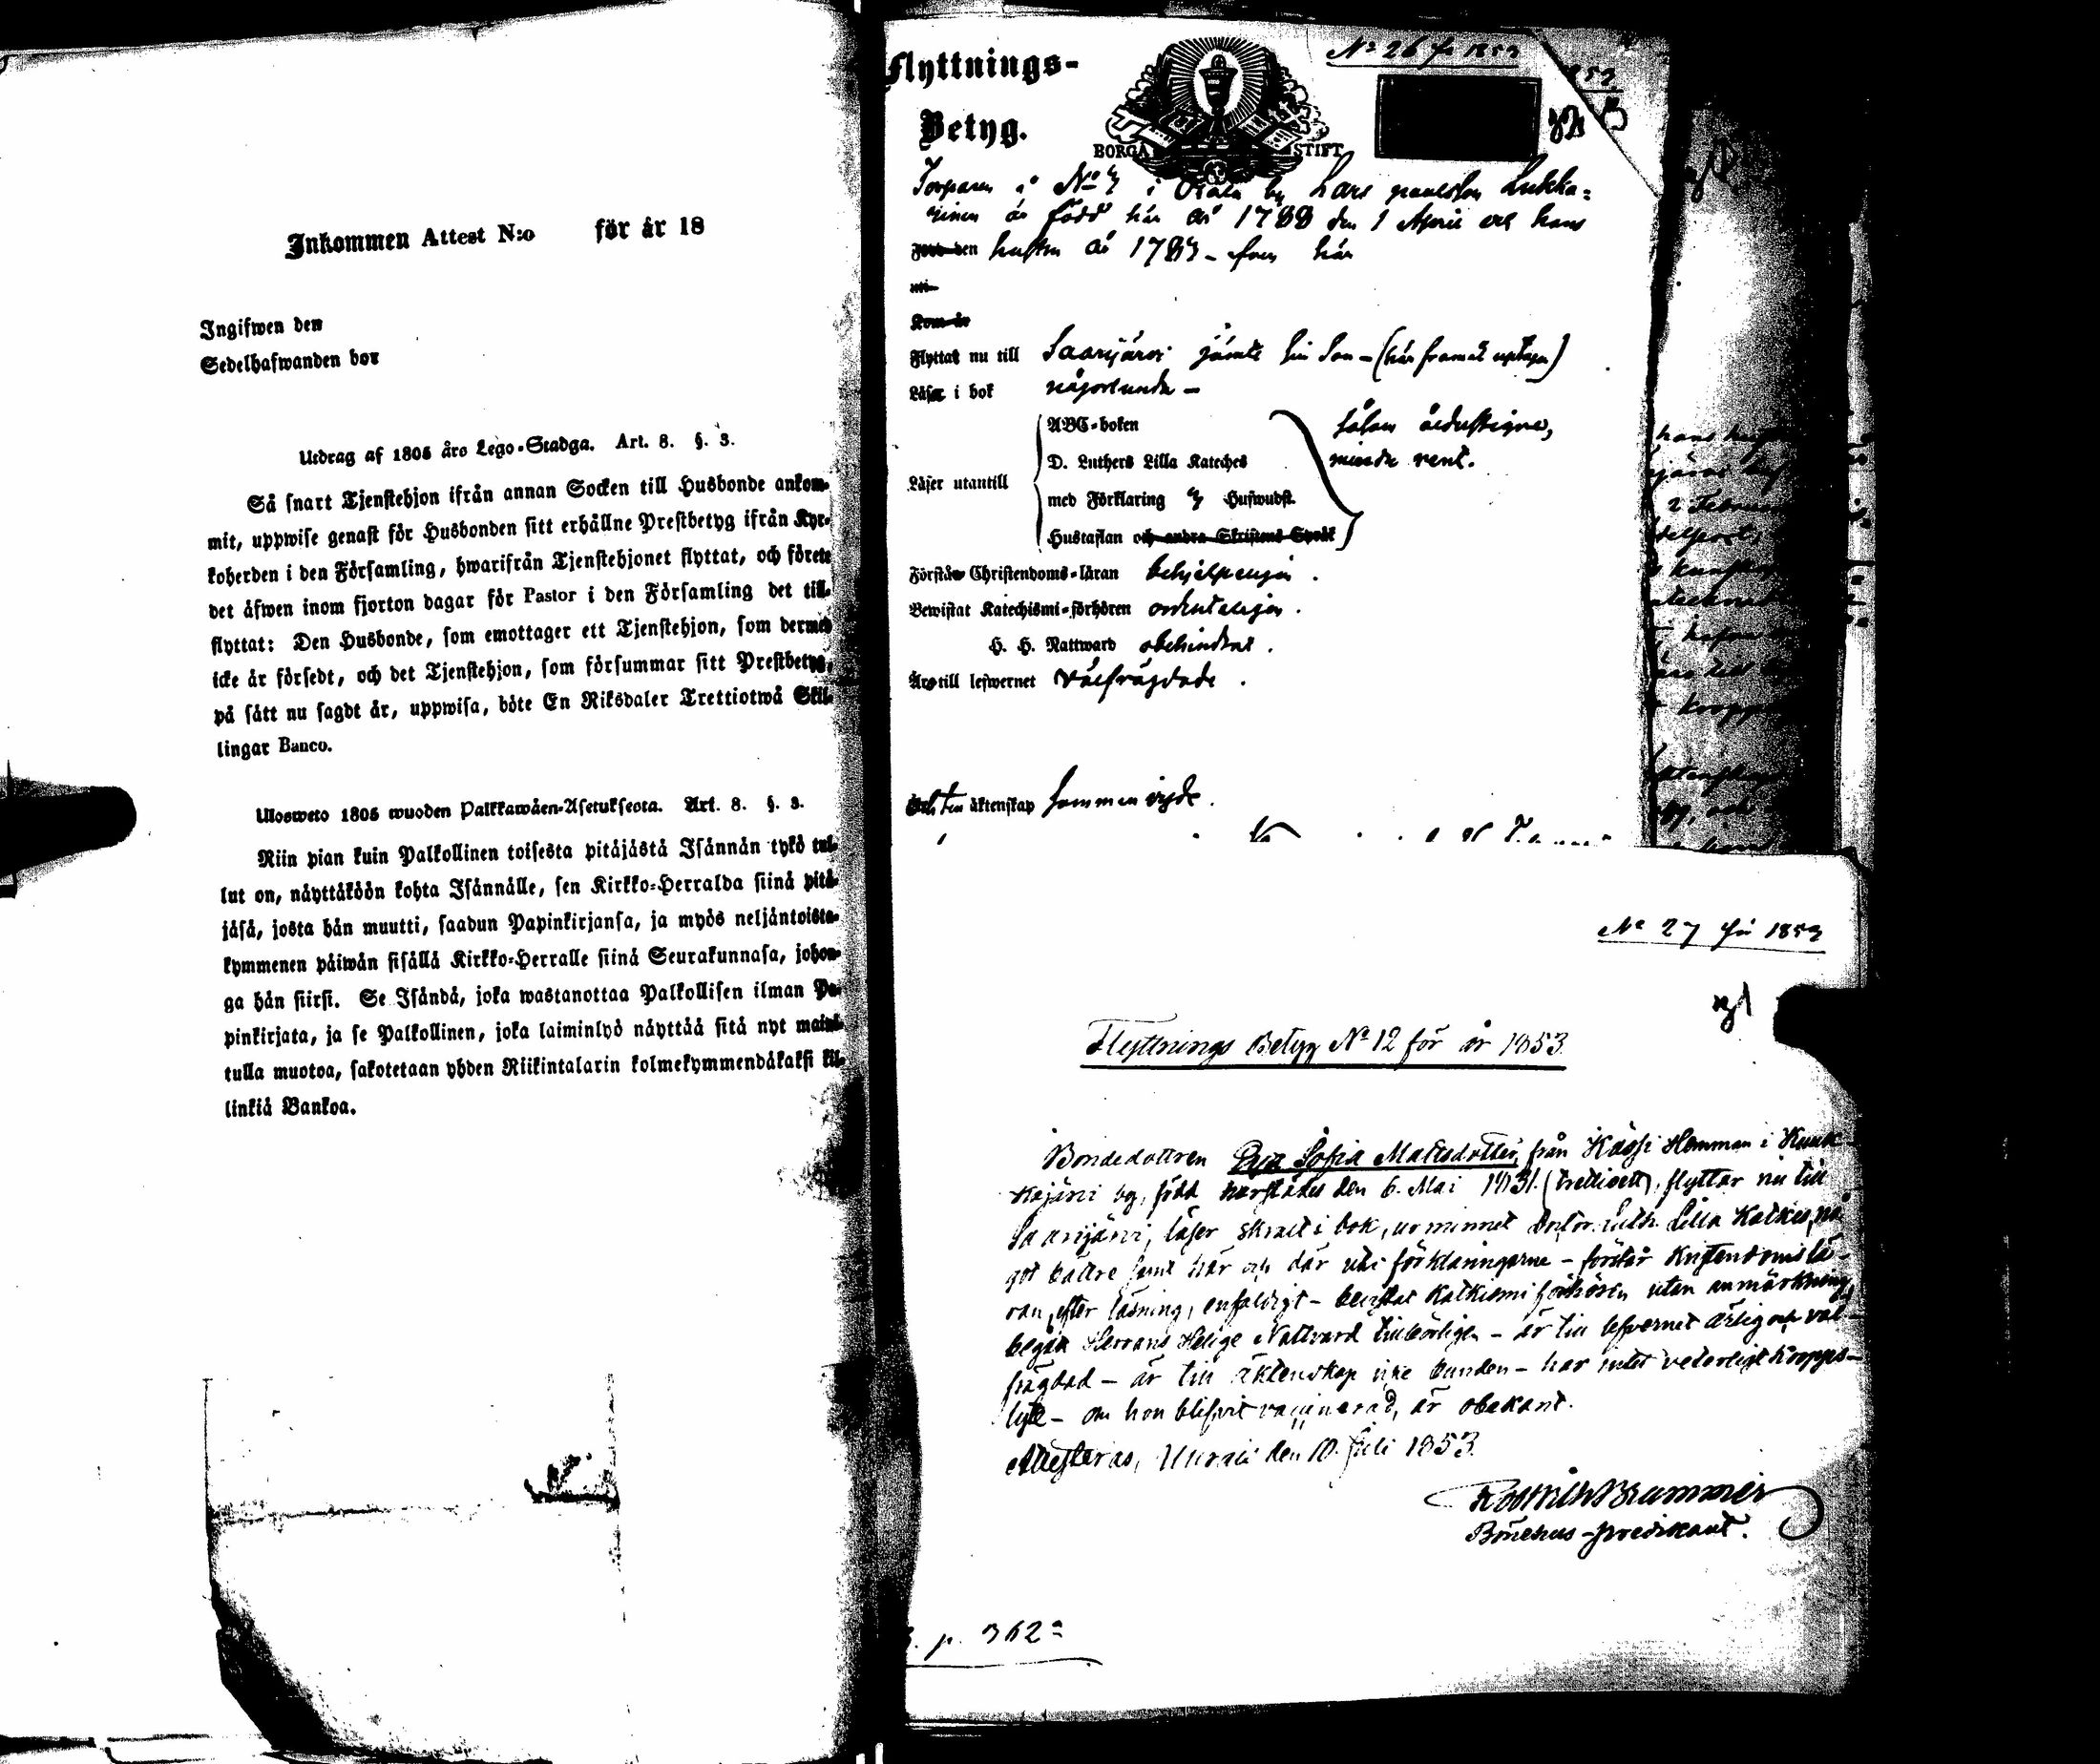 Inkommen Attest N:o för år 18
Ingifwen den
Sedelhafwanden bor
Utdrag af 1805 års Lego-Stadga. Art. 8. §. 3.
Så snart Tjenstehjon ifrån annan Socken till Husbonde ankom-
mit, uppwise genast för Husbonden sitt erhållne Prestbetyg ifrån Kyr-
koherden i den Församling, hwarifrån Tjenstehjonet flyttat, och förete
det äfwen inom fjorton dagar för Pastor i den Församling det till-
flyttat: Den Husbonde, som emottager ett Tjenstehjon, som dermed
icke är försedt, och det Tjenstehjon, som försummar sitt Prestbetyg,
på sätt nu sagdt är, uppwisa, böte En Riksdaler Trettiotwå Skil-
lingar Banco.
Ulosweto 1805 wuoden Palkkawäen-Asetuksesta. Art. 8. §. 3.
Niin pian kuin Palkollinen toisesta pitäjästä Isännän tykö tul-
lut on, näyttäköön kohta Isännälle, sen Kirkko-Herralda siinä pitä-
jäsä, josta hän muutti, saadun Papinkirjansa, ja myös neljäntoista-
kymmenen päiwän sisällä Kirkko-Herralle siinä Seurakunnasa, johon-
ga hän siirsi. Se Isändä, joka wastanottaa Palkollisen ilman Pa-
pinkirjata, ja se Palkollinen, joka laiminlyö näyttää sitä nyt maini-
tulla muotoa, sakotetaan yhden Riikintalarin kolmekymmendäkaksi kil-
linkiä Bankoa.
Flyttnings-
Betyg.
BORGÅ STIFT
No 26 för 1853
Torparen å No 7 i by Lars Paulsson Lukka-
rinen är född här år 1788 den 1 April och hans
Född den hustru år 1783 - här
uti
Kom år
Flyttat nu till Saarijärvi jämte sin son - (här framåt uptagen)
Läser i bok någorlunda -
ABC-boken
D. Luthers Lilla Kateches
Läser utantill
med Förklaring Hufwudst.
Hustaflan och andra Skriftens Språk
mindre rent.
Förstår Christendoms-läran behjelpeligen.
Bewistat Katechismi-förhören ordenteligen.
H. H. Nattward obehindrat.
Äro till lefwernet välfrägdade.
äktenskap sammanvigde.
No 27 för 1853
Flyttnings Betyg No 12 för år 1853.
Bondedottren Eva Sofia Mattsdotter, från Kässi Hemman i
kajärvi by, född härstädes den 6. Mai 1831. (trettioett), flyttar nu till
Saarijärvi, läser skralt i bok, ur minnet Doctor Luth. Lilla Katkes, nå-
got bättre samt här och där uti förklaringarne - förstår Kristendomslä-
ran, efter läsning, enfaldigt - bevistat Katkismi förhören utan anmärkning,
begått Herrans Helige Nattvard tillbörligen - är till lefvernet ärlig och väl-
frägdad - är till äktenskap icke bunden - har intet veterligt kropps-
lyte - om hon blifvit vaccinerad, är obekant.
Attesteras, Uurais den 10. Juli 1853.
Brummer
Bönehus-predikant.
p. 362